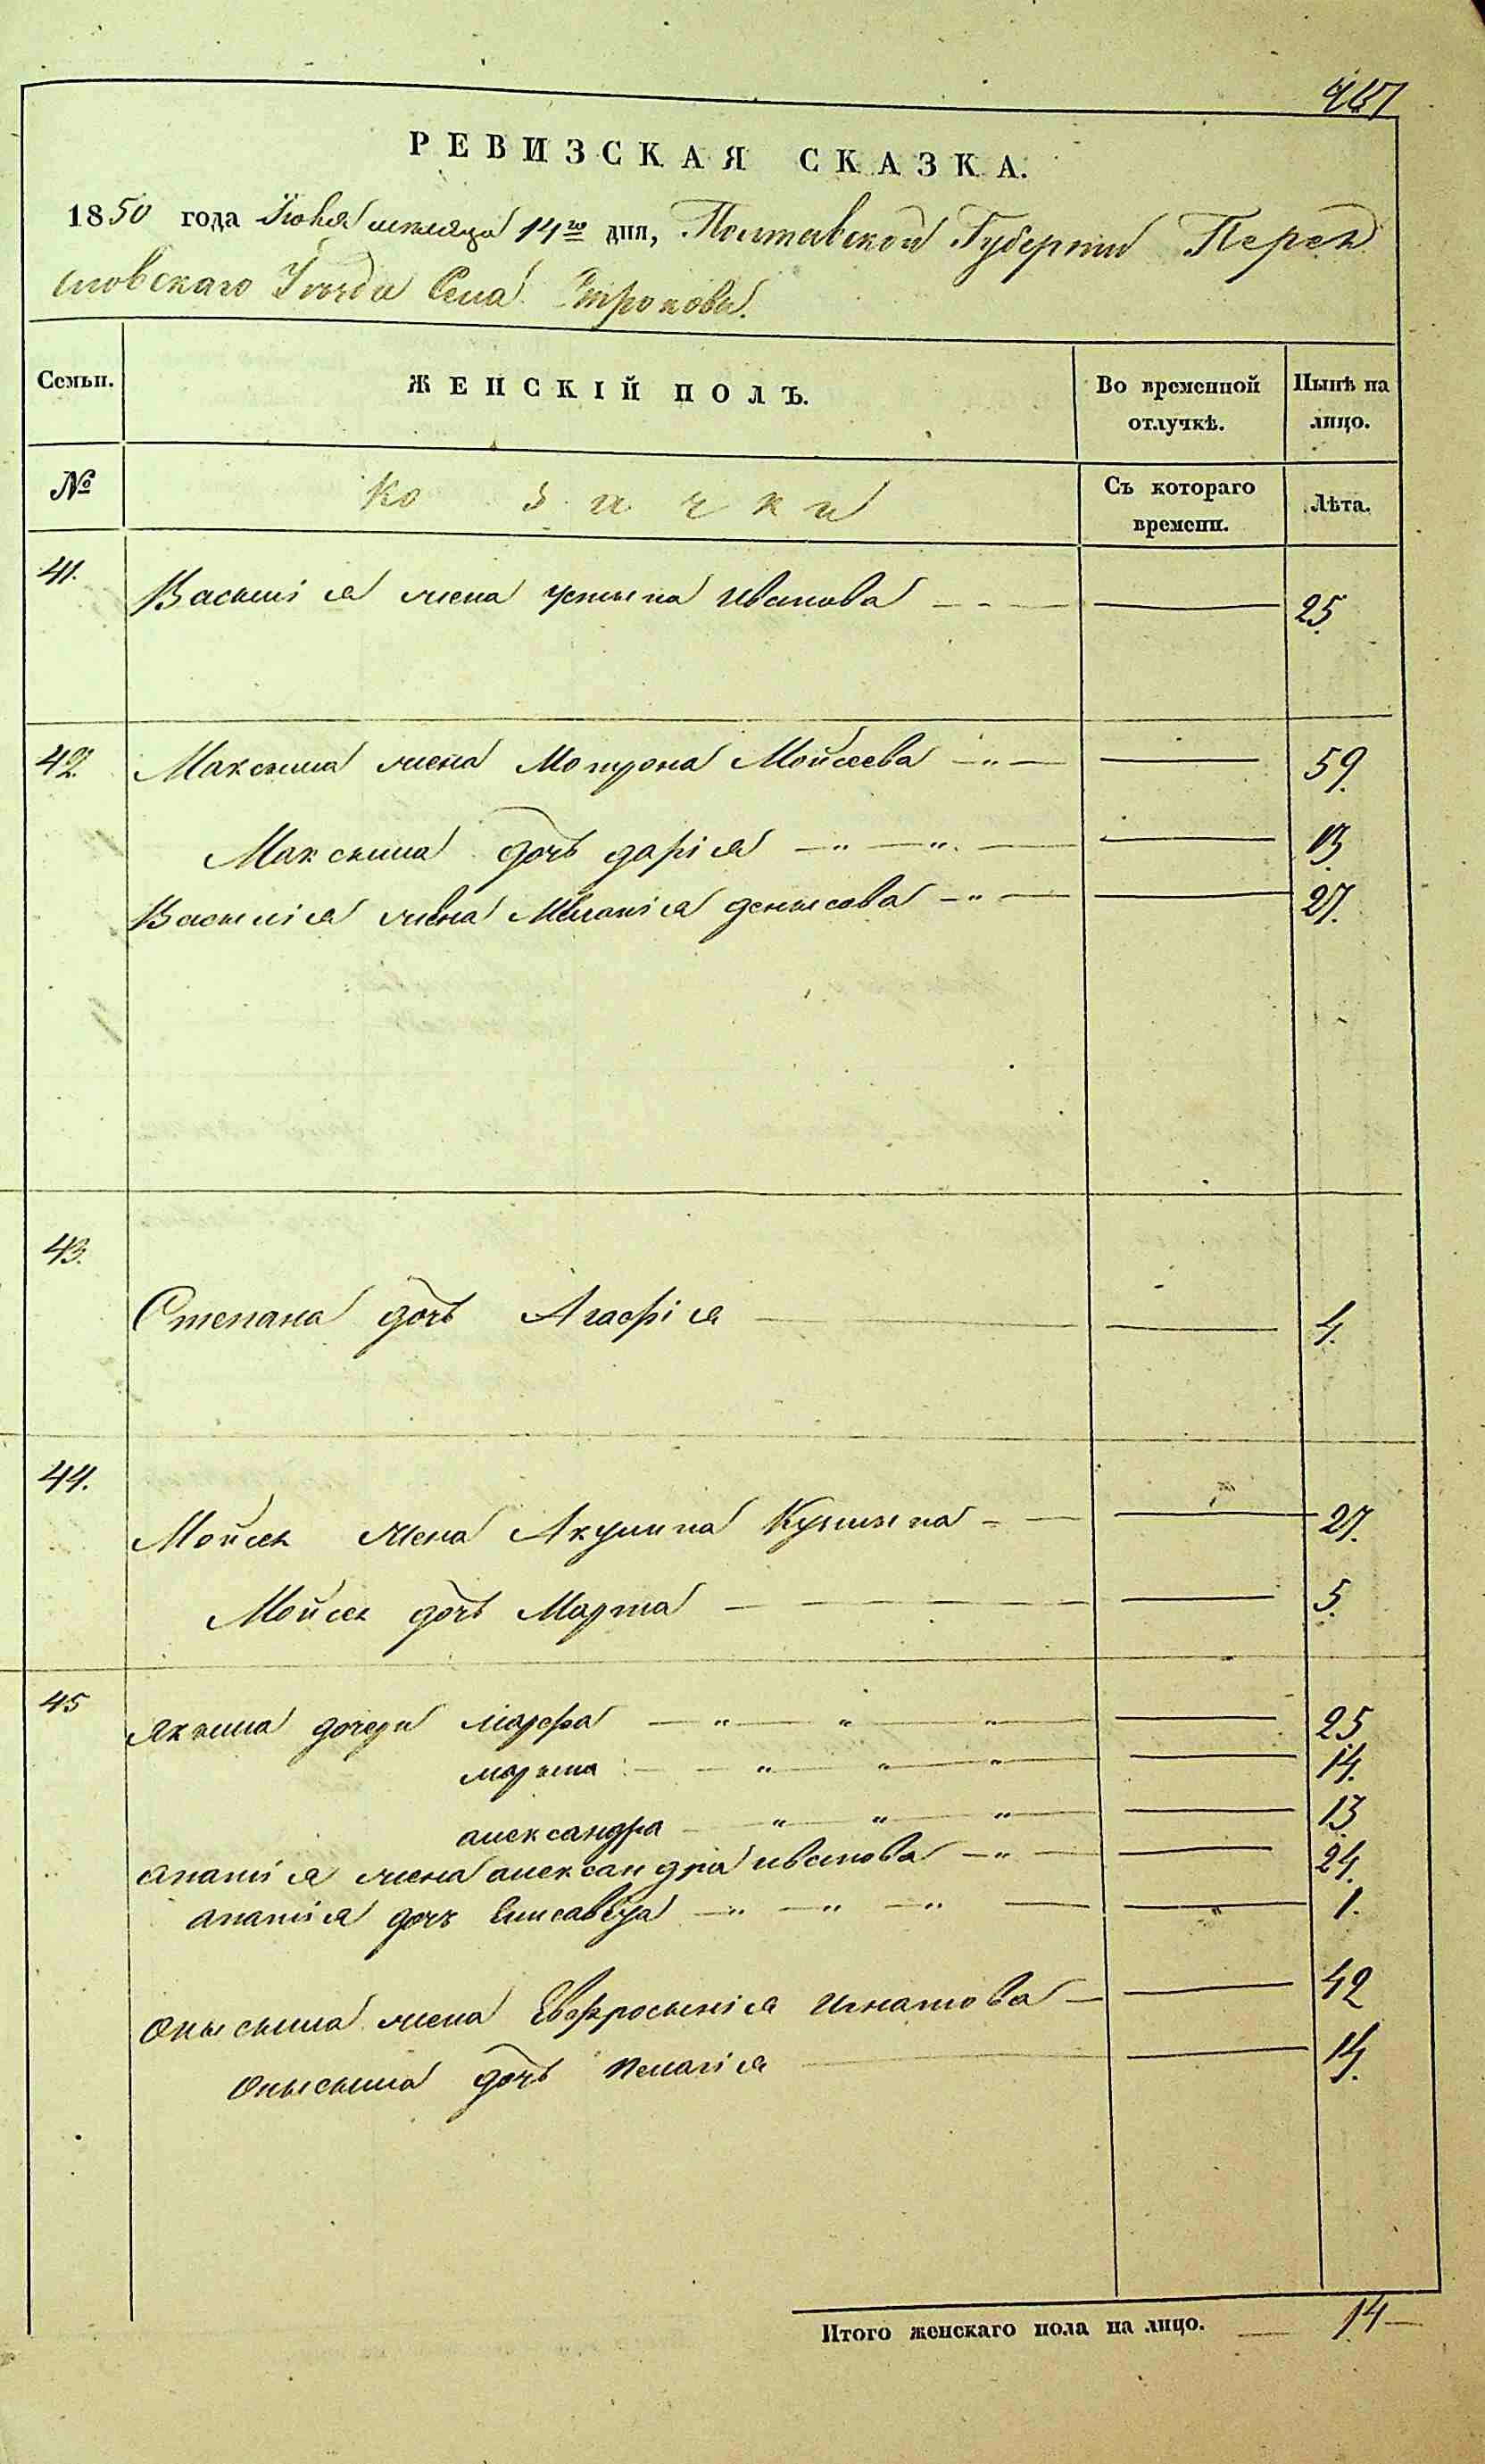 РЕВИЗСКАЯ СКАЗКА.
1850 года Іюня месяца 14го дня, Полтавской Губерніи Перея
словскаго Уезда Села Строкова.
Семьи. ЖЕНСКІЙ ПОЛЪ. Во временной отлучкѣ. Нынѣ на лицо.
№ Козачки Съ котораго времени. Лѣта.
41. Васылія жена Устына Иванова 25
42. Максыма жена Мотрона Мойсеева 59.
Максыма дочь Дарія 13
Васылія жена Меланія Денысова 27.
43.
Степана дочь Агафія 4.
44.
Мойсея жена Акулина 27.
Мойсея дочь Марта 5.
45 Якыма дочери Марфа 25
Марына 14.
александра 13
ананія жена александра иванова 24.
ананія дочь Елисавета 1.
Онысыма жена Евфросынія Игнатова 42
Онысыма дочь Пелагія 14.
Итого женскаго пола на лицо. 14